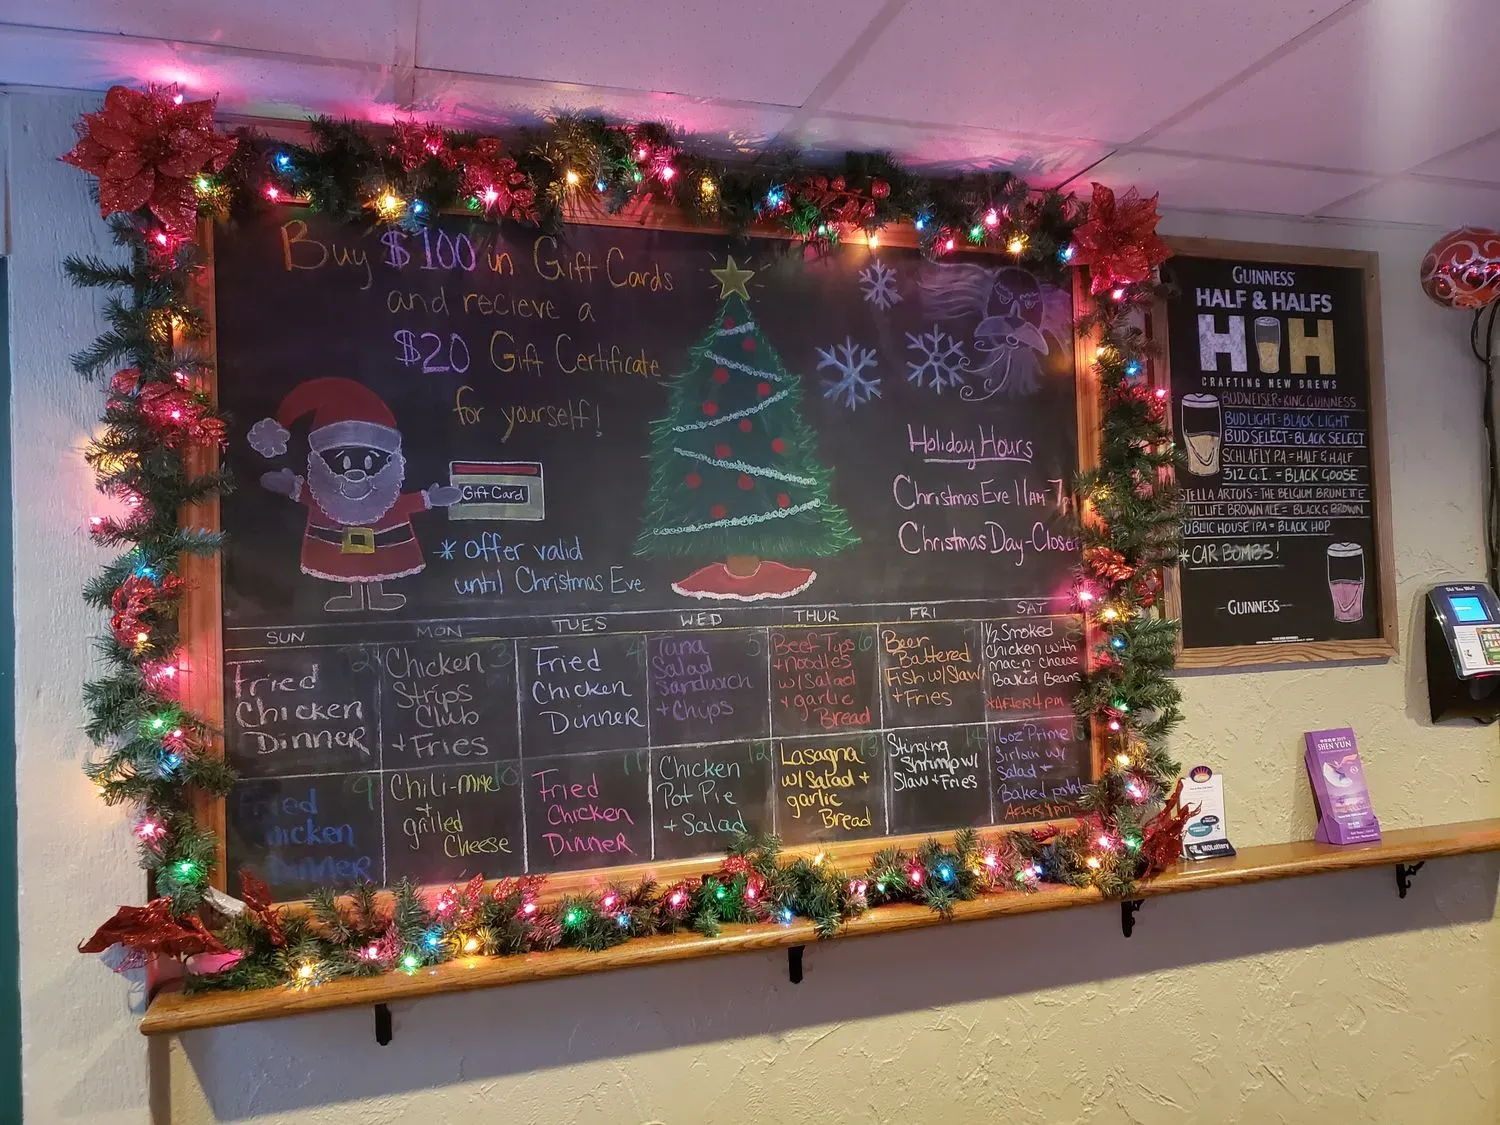 Buy $100 in Gift Cards
and recieve a
$20 Gift Certificate
for yourself!
Gift Card
* offer valid
until Christmas Eve
Holiday Hours
Christmas Eve 11AM-7
Christmas Day-Close
SUN
MON
TUES
WED
THUR
FRI
SAT
2
Fried
Chicken
Dinner
3
Chicken
Strips
Club
+ Fries
4
Fried
Chicken
Dinner
5
Tuna
Salad
Sandwich
+ Chips
6
Beef Tips
+noodles
w/ Salad
+ garlic
Bread
Beer
Battered
Fish w/Slaw
+ Fries
1/2 Smoked
Chicken with
mac-n-cheese
+
Baked Beans
*AFTER 4PM
9
Fried
hicken
Dinner
10
Chili-mac
+
grilled
Cheese
11
Fried
Chicken
Dinner
12
Chicken
Pot Pie
+ Salad
13
Lasagna
w/ Salad +
garlic
Bread
14
Stinging
Shrimp w/
Slaw + Fries
16oz Prime
Sirloin w/
Salad +
Baked potato
AFTER 4pm
GUINNESS
HALF & HALFS
H H
CRAFTING NEW BREWS
BUDWEISER=KING GUINNESS
BUD LIGHT=BLACK LIGHT
BUD SELECT=BLACK SELECT
SCHLAFLY PA=HALF & HALF
312 G.I. = BLACK GOOSE
STELLA ARTOIS=THE BELGIUM BRUNETTE
LIFE BROWN ALE= BLACK & BROWN
UBLIC HOUSE IPA = BLACK HOP
* CAR BOMBS!
GUINNESS
Did You Win?
SHEN YUN
MOLottery